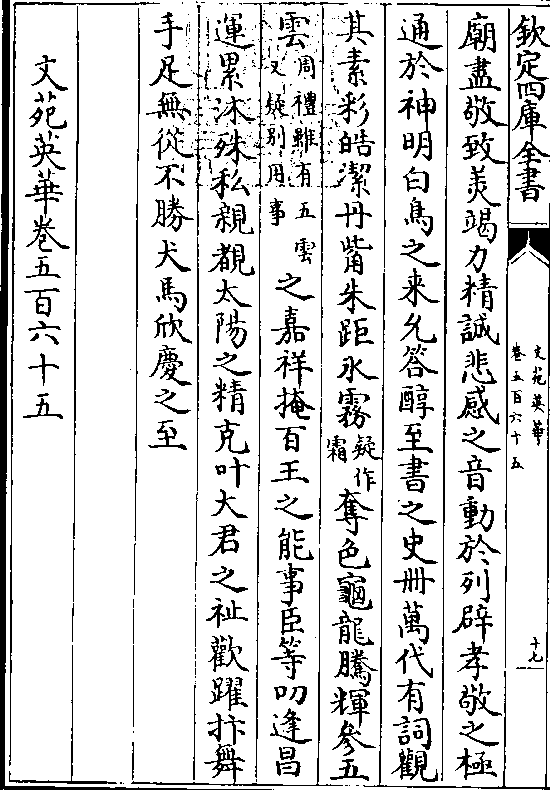 欽定四庫全書
文苑英華
卷五百六十五
十九
廟盡敬致羙竭力精誠悲感之音動於列辟孝敬之極
通於神明白鳥之来允答醇至書之史冊萬代有詞觀
其素彩皓潔丹觜朱距氷霧疑作霜奪色龜龍騰輝參五
雲周禮雖有五雲又疑别用事之嘉祥掩百王之能事臣等叨逢昌
運累沐殊私親覩太陽之精克叶大君之祉歡躍抃舞
手足無從不勝犬馬欣慶之至
文苑英華卷五百六十五